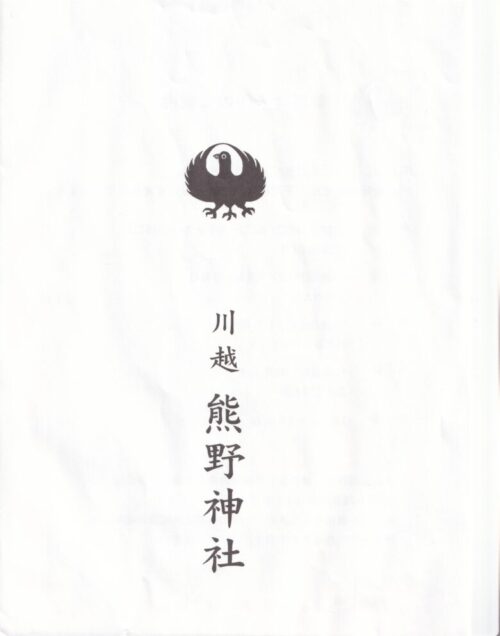 川越 熊野神社